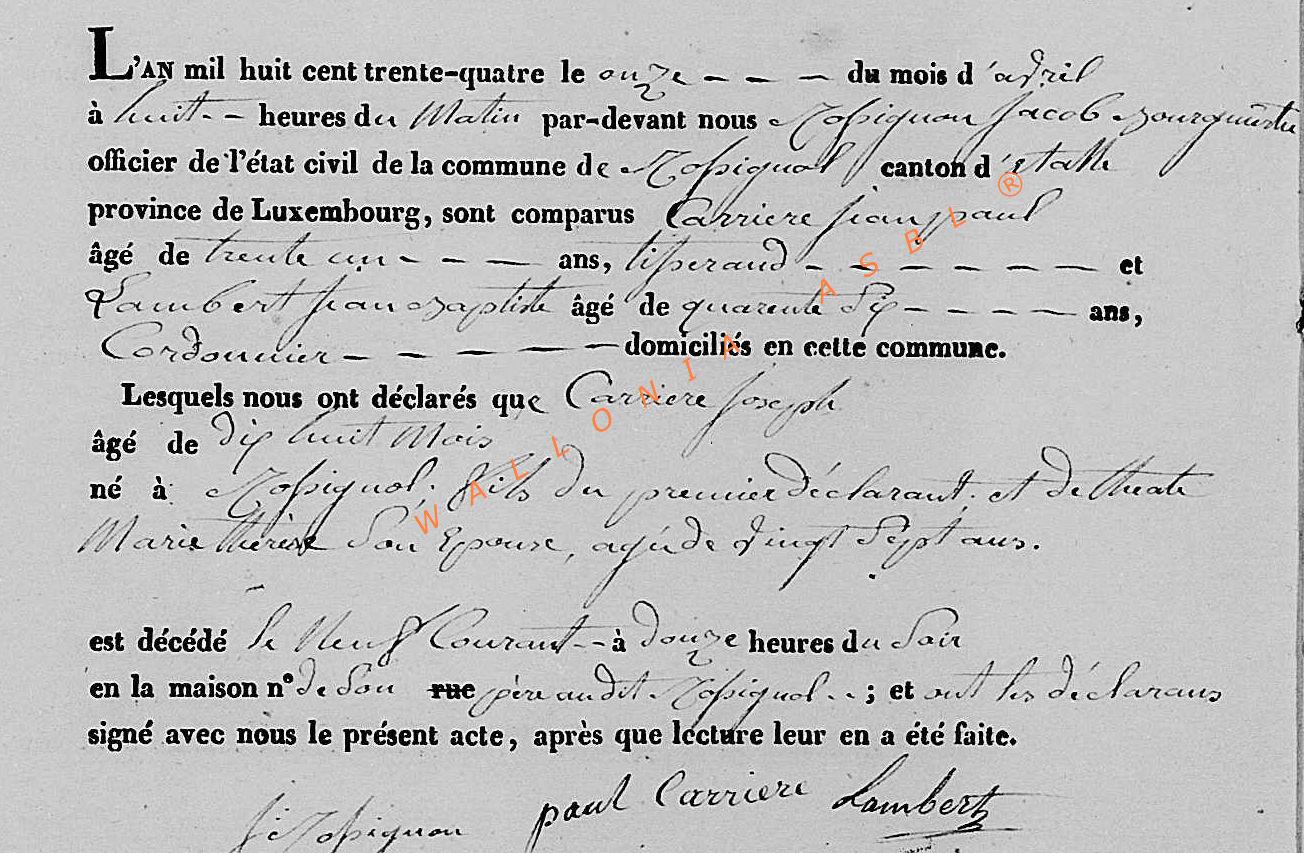 L'AN mil huit cent trente-quatre le onze - - - du mois d'avril
à huit - - heures du Matin par-devant nous Rossignon Jacob Bourguemestre
officier de l'état civil de la commune de Rossignol canton d'etalle
province de Luxembourg, sont comparus Carriere jean paul
âgé de trente un - - - - ans, tisserand - - - - - - - et
Lambert jean Baptiste âgé de quarente Six - - - - ans,
Cordonnier - - - - - - domiciliés en cette commune.
Lesquels nous ont déclarés que Carriere joseph
âgé de dix huit Mois
né à Rossignol, fils du premier déclarant, et de
Marie thérèse Son Epouse, agée de vingt Sept ans.
est décédé le Neuf Courant - - à douze heures du Soir
en la maison n° de Son rue père audit Rossignol - - ; et ont les déclarans
signé avec nous le présent acte, après que lecture leur en a été faite.
J: Rossignon paul Carriere Lambert
WALLONIA ASBL ®